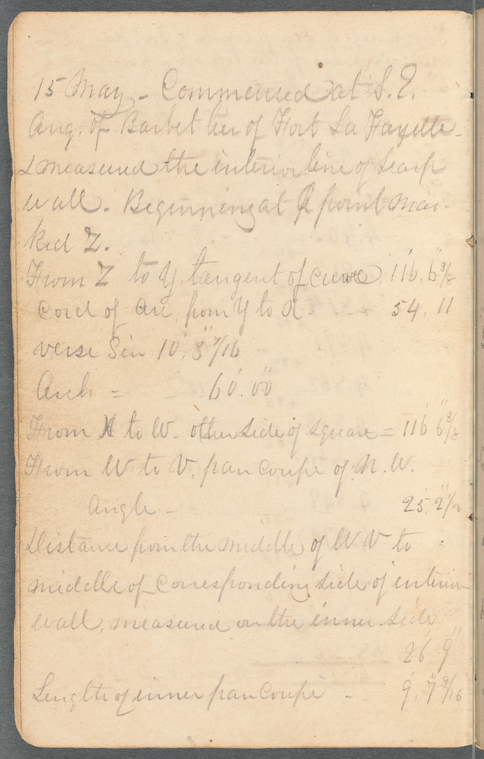 15 May - Commenced at S.E.
Ang. of Barbet tier of Fort La Fayette -
& measured the interior line of scarp
wall. Beginning at a point mar-
ked Z.
From Z to Y, tangent of curve 116' 6" 3/8
Cord of arc, from Y to X 54. 11
verse Sin 10' 3" 7/16
Arch = 60'. 00"
From X to W. other side of square = 116' 6" 3/8
From W to V. pan coupé of N.W.
Angle - 25' 2" 1/2
Distance from the middle of W V to
middle of corresponding side of interior
wall, measured on the inner side
26' 9"
Length of inner pan coupé - 9. 7